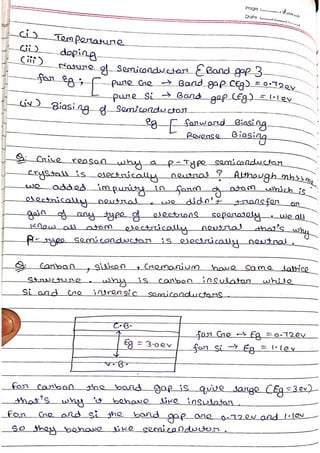 Page
Date
(i) Temperature
(ii) doping
(iii) Nature of Semiconductor { Band gap }
for eg; pure Ge → Band gap (Eg) = 0.72ev
pure Si → Band gap (Eg) = 1.1ev
(iv) Biasing of Semiconductor
eg Forward Biasing
Reverse Biasing
Q: Give reason why a P-Type semiconductor
crystall is electrically neutral ? Although
we added impurity in form of atom which is
electrically neutral . we didn't transfer or
gain of any type of electrons seperately . we all
know all atom electrically neutral that's why
P-type semiconductor is electrically neutral .
Q: Carbon , silicon , Gremanium have same lattice
structure . why is carbon insulator while
Si and Ge intrensic semiconductors .
C.B.
for Ge → Eg = 0.72ev
Eg = 3.0ev
for Si → Eg = 1.1ev
V.B.
For carbon the band gap is quive large (Eg = 3ev)
that's why it behave like insulator .
For Ge and Si the band gap are 0.72ev and 1.1ev
so they behave like semiconductor .